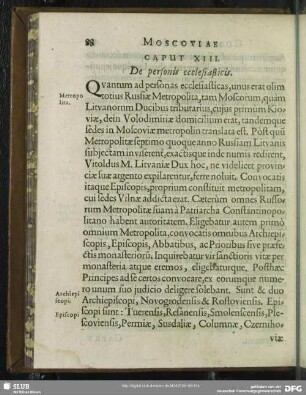 88 MOSCOVIAE
CAPUT XIII.
De personis ecclesiasticis.
QVantum ad personas ecclesiasticas, unus erat olim
Metropolita. totius Russiæ Metropolita, tam Moscorum, quàm
Litvanorum Ducibus tributarius, cujus primùm Kio-
viæ, dein Volodimiriæ domicilium erat, tandemque
sedes in Moscoviæ metropolin translata est. Pòst quū
Metropolitæ septimo quoque anno Russiam Litvanis
subjectam inviserent, exactisque inde numis redirent,
Vitoldus M. Litvaniæ Dux hoc, ne videlicet provin-
ciæ suæ argento expilarentur, ferre noluit. Convocatis
itaque Episcopis, proprium constituit metropolitam,
cui sedes Vilnæ addicta erat. Cæterùm omnes Russo-
rum Metropolitæ suam à Patriarcha Constantinopo-
litano habent autoritatem. Eligebatur autem primò
omnium Metropolita, convocatis omnibus Archiepi-
scopis, Episcopis, Abbatibus, ac Prioribus sive præfe-
ctis monasteriorū. Inquirebatur vir sanctioris vitæ per
monasteria atque eremos, eligebaturque. Posthæc
Principes ad se certos convocare, ex eorumque nume-
ro unum suo judicio deligere solebant. Sunt & duo
Archiepiscopi. Archiepiscopi, Novogrodensis & Rostoviensis. Epi-
Episcopi scopi sunt: Tuerensis, Resanensis, Smolenscensis, Ple-
scoviensis, Permiæ, Susdaliæ, Columnæ, Czerniho-
viæ
SLUB